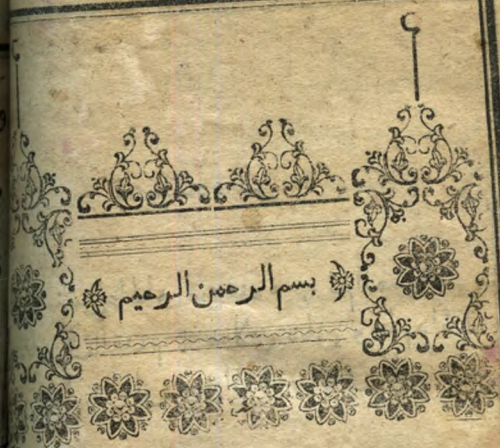 بسم الرحمن الرحيم